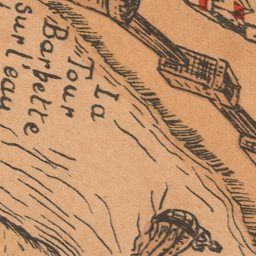 "La
Tour
Barbette"
sur l'eau